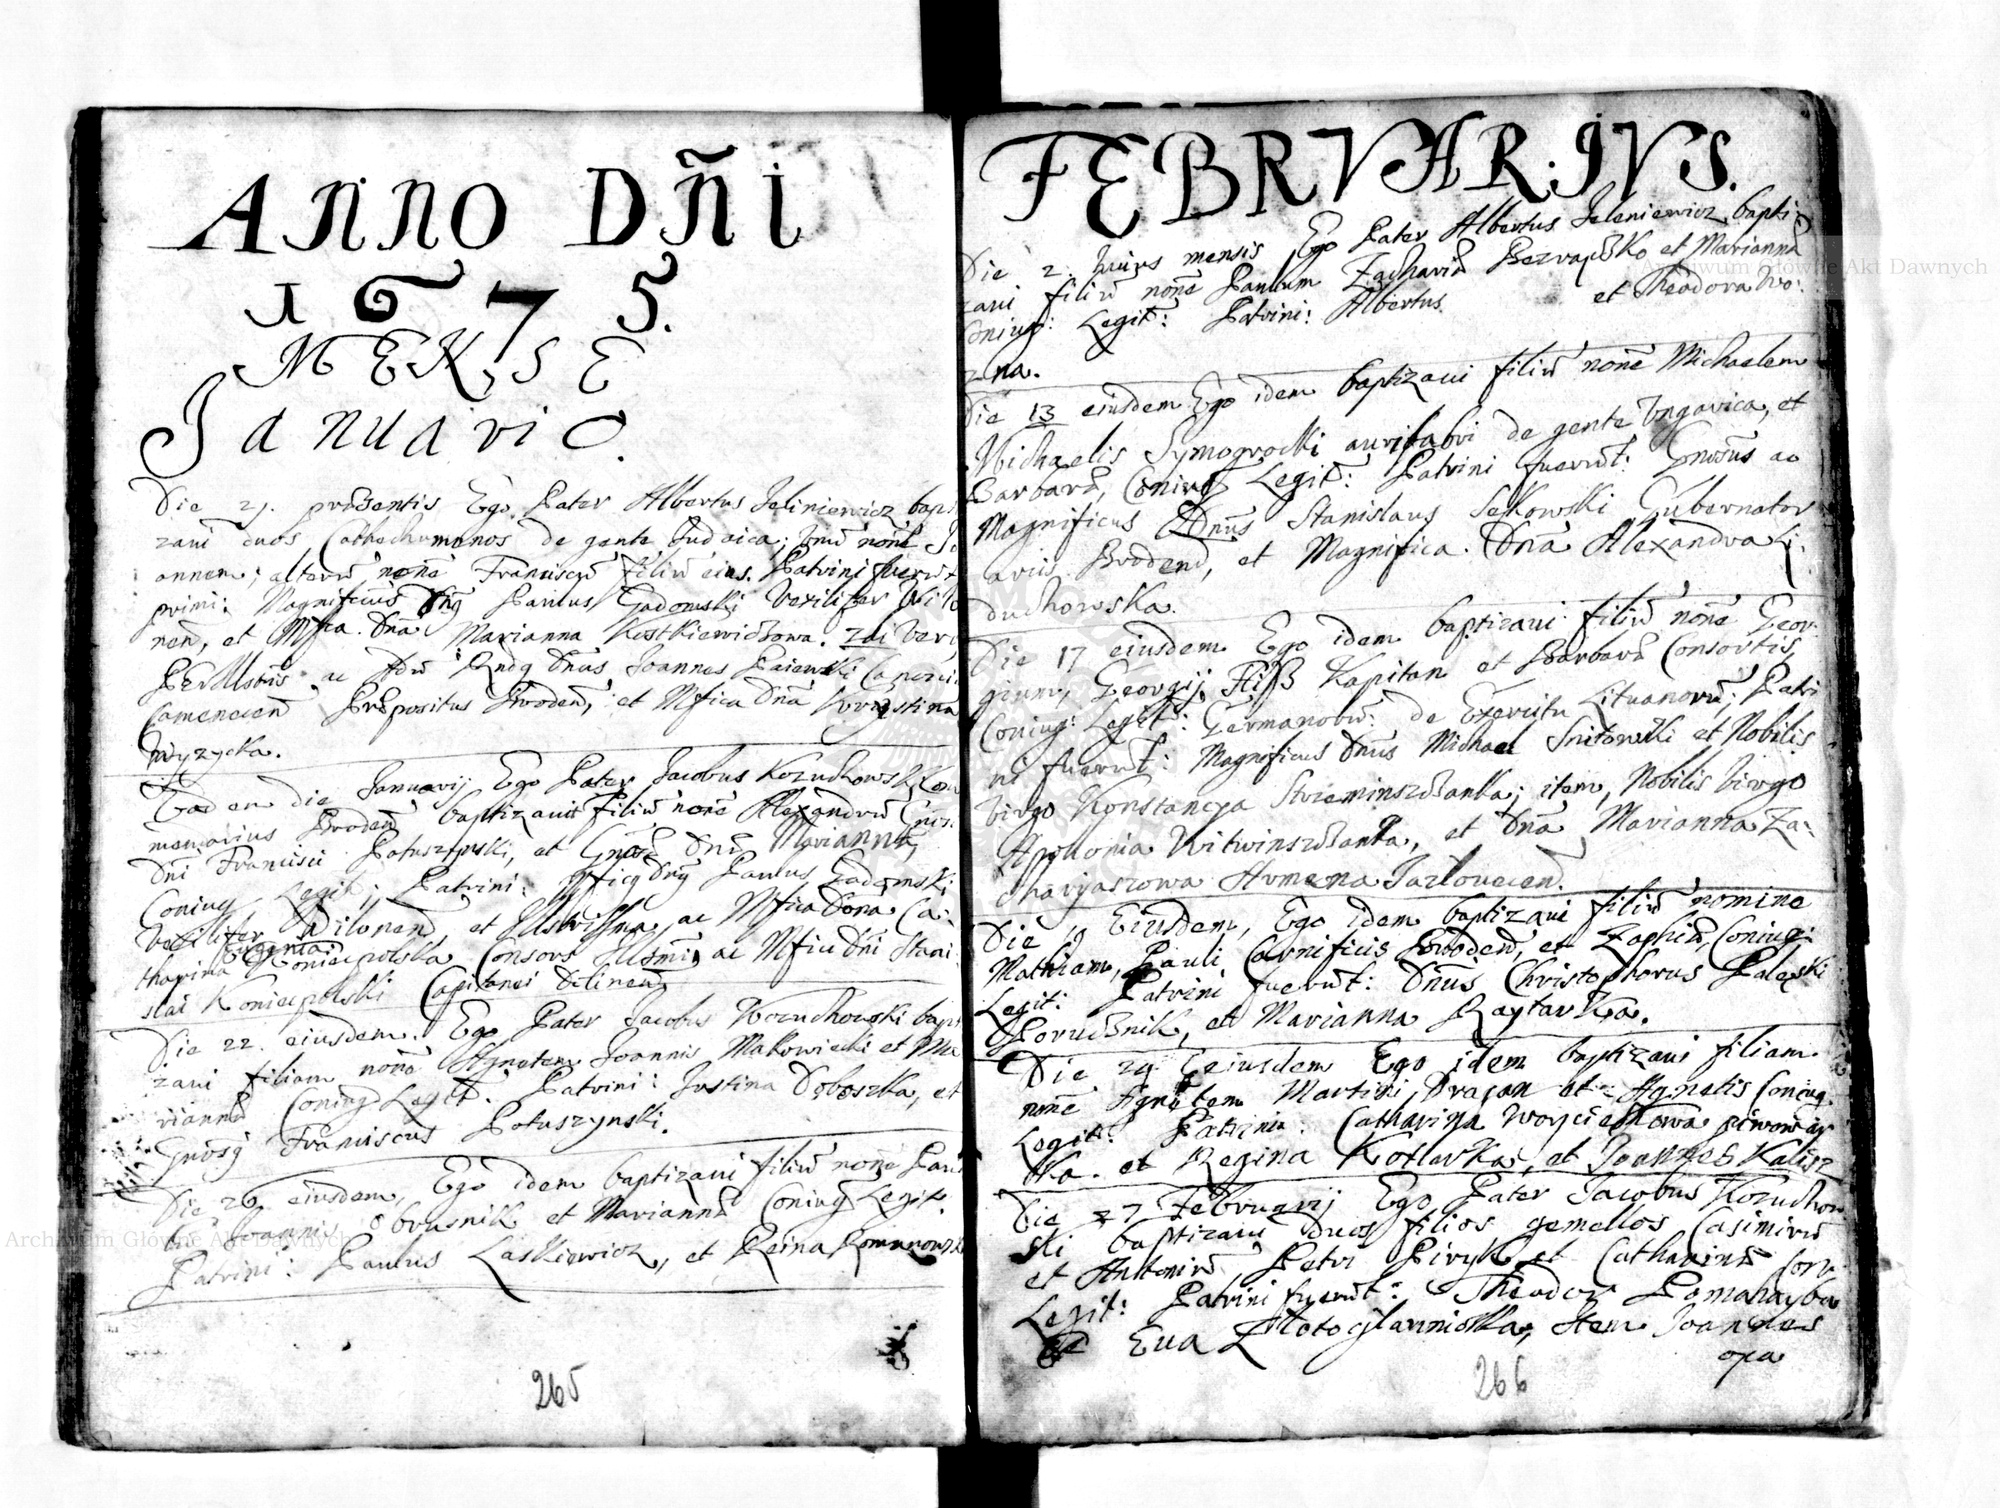 ANNO Dñi
1675.
MENSE
Januario.
Die 21. præsentis Ego Pater Albertus Jeliniewicz bapti
zaui duos Cathechumenos de gente Judaica; Vnũ nõne Jo
annem; alterũ nõne Franciscũ filiũ eius. Patrini fuerũt
primi: Magnificus Dñs Paulus Gadomski Vexilifer
nen, et Mfca Dña Marianna Kostkiewiczowa. 2di Vero
ac Adm Rndg Dñus Joannes Canoni:
Camenecen Præpositus Broden; et Mfica Dña Krystina
Eadem die Januarij Ego Pater Jacobus Kozuchowski Com
mendarius Broden baptizaui filiũ nõne Alexandrũ Gnosi
Dñi Francisci Potuszynski, et Gnosæ Dñæ Mariannæ
Coniug Legit; Patrini: Mficg Dñg Paulus Gadomski
Vexilifer et Illustrissima ac Mfica Dona Ca:
tharina Eugenia Koniecpolska Consors Illsmi ac Mfici Dñi Stani:
slai Koniecpolski Capitanei Dolinen
Die 22. eiusdem. Ego Pater Jacobus Kozuchowski bapti
zaui filiam nõne Agnetem Joannis Makowiecki et Ma
riannæ Coniug Legit. Patrini: Justina Doboszka, et
Gnosg Franciscus Potuszynski.
Die 26 eiusdem, Ego idem baptizaui filiũ nõne Pau
lũ Joannis Obrusnik et Mariannæ Coniug Legit.
Patrini: Paulus Laskiewicz, et Reina
265
FEBRVARIVS.
Die 2. huius mensis Ego Pater Albertus Jeleniewicz bapti
zaui filiũ nõne Paulum Zachariæ et Mariannæ
Coniug: Legit: Patrini: Albertus et Theodora Wo:
zna.
Die 13 eiusdem Ego idem baptizaui filiũ nõne Michaelem
Michaelis Symogrocki aurifabri de gente Vngarica, et
Barbaræ, Coniug Legit: Patrini fuerũt: Gnosus ac
Magnificus Dñus Stanislaus Sekowski Gubernator
arcis Broden, et Magnifica Dña Alexandra Li
duchowska.
Die 17 eiusdem Ego idem baptizaui filiũ nõne Geor
gium, Georgij Kapitan et Barbaræ Consortis,
Coniug: Legit: Germanorũ: de Exercitu Lituanorũ; Patri
ni fuerũt: Magnificus Dñus Michael Snitowski et Nobilis
Virgo Konstancya Strzeminszczanka; item, Nobilis Virgo
Apolonia Witwinszczanka, et Dña Marianna Za:
charyaszowa Jazlouecen.
Die 19 Eiusdem, Ego idem baptizaui filiũ nomine
Mathiam, Pauli Carnificis Broden, et Zophiæ, Coniug:
Legit: Patrini fuerũt: Dñus Christophorus
Porucznik, et Marianna Raytarka.
Die 24 eiusdem Ego idem baptizaui filiam
nõne Agnetem Martini Dragan et Agnetis Coniug.
Legit: Patrini: Catharina Woyciechowa piwowar
ka. et Regina Kotlarka, et Joannes Kalisz
Die 27 Februarij Ego Pater Jacobus Kozuchow
ski baptizaui duos filios gemellos Casimirũ
et Antoniũ, Petri Piryk et Catharinæ Con:
Legit: Patrini fuerũt: Theodor Pomahayba
et Eua Zlotoglawniczka, Item Joannes
opa
266
Archiwum Główne Akt Dawnych
Archiwum Główne Akt Dawnych